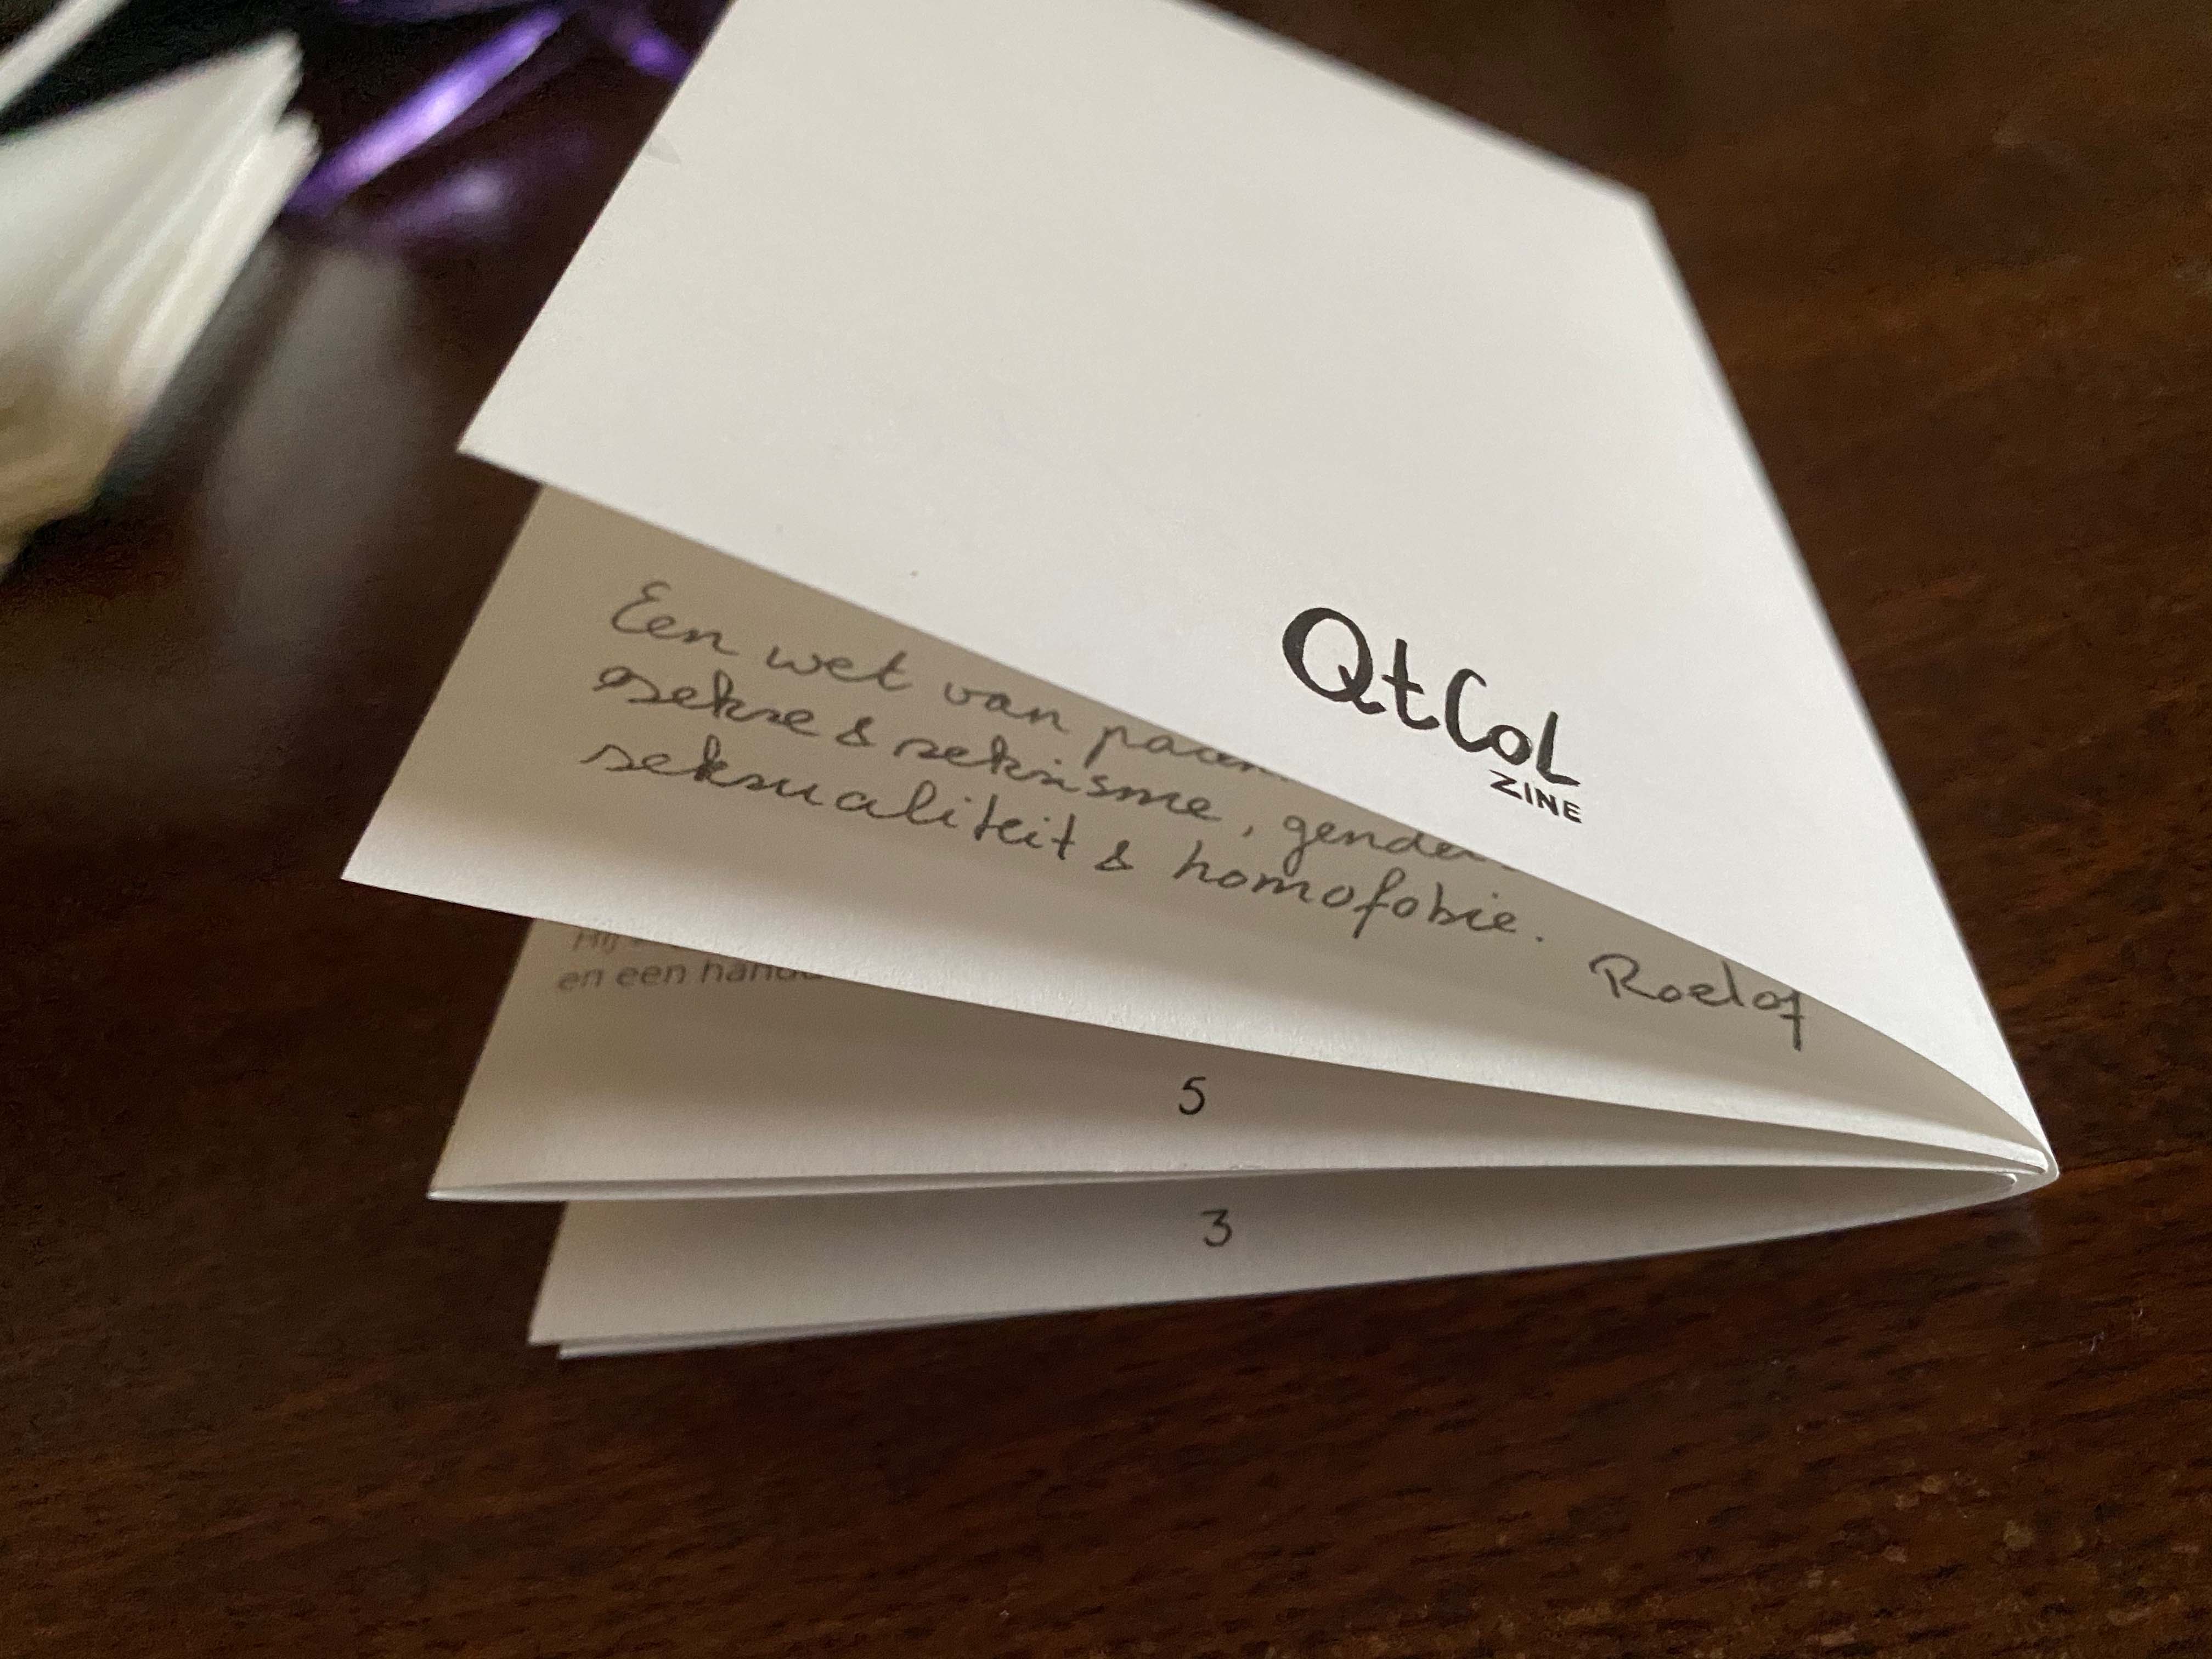 QtCoL
ZINE
Een wet van
sekse & seksisme, gender
seksualiteit & homofobie.
Roelof
en een
5
3